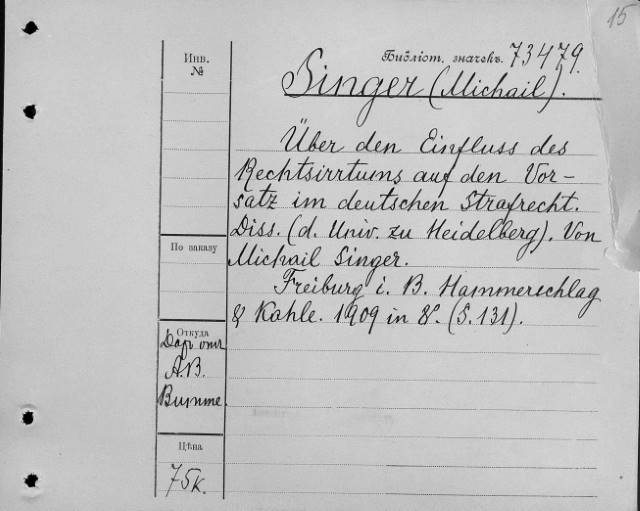 15
Инв.
№
Библіот. значекъ. 73479.
Singer (Michail).
Über den Einfluss des
Rechtsirrtums auf den Vor-
satz im deutschen Strafrecht.
Diss. (d. Univ. zu Heidelberg). Von
Michail Singer.
Freiburg i. B. Hammerschlag
& Kahle. 1909 in 8°. (S. 131).
По заказу
Откуда
Даръ отъ
А.В.
Витте
Цѣна
75к.